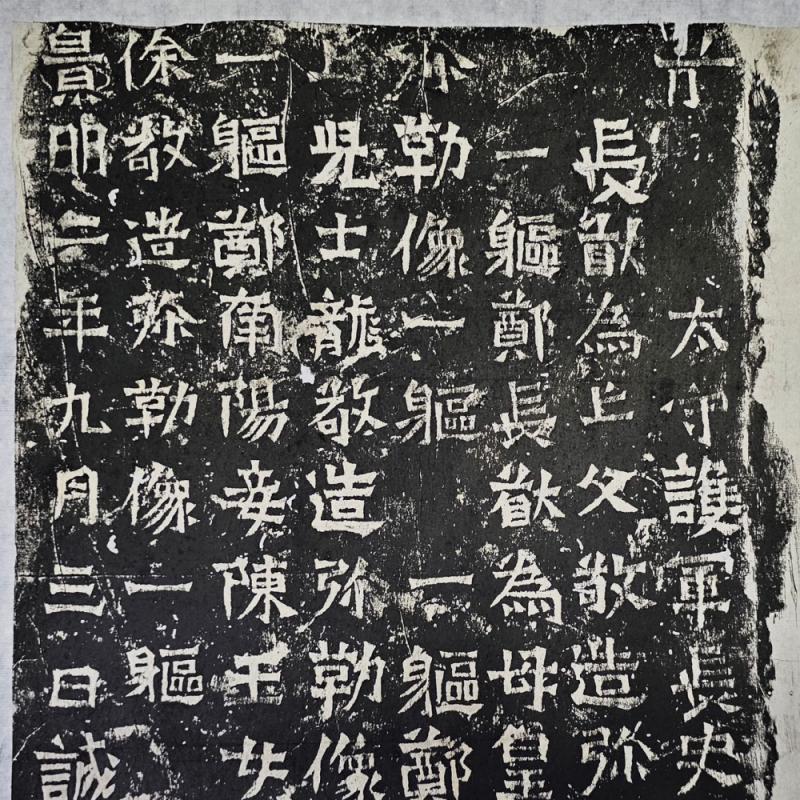 太守護軍長史
長猷為亡父敬造弥
一軀鄭長猷為母皇
弥勒像一軀一軀鄭
亡兒士龍敬造弥勒像
一軀鄭南陽妾陳玉女
徐敬造弥勒像一軀
景明二年九月三日誡